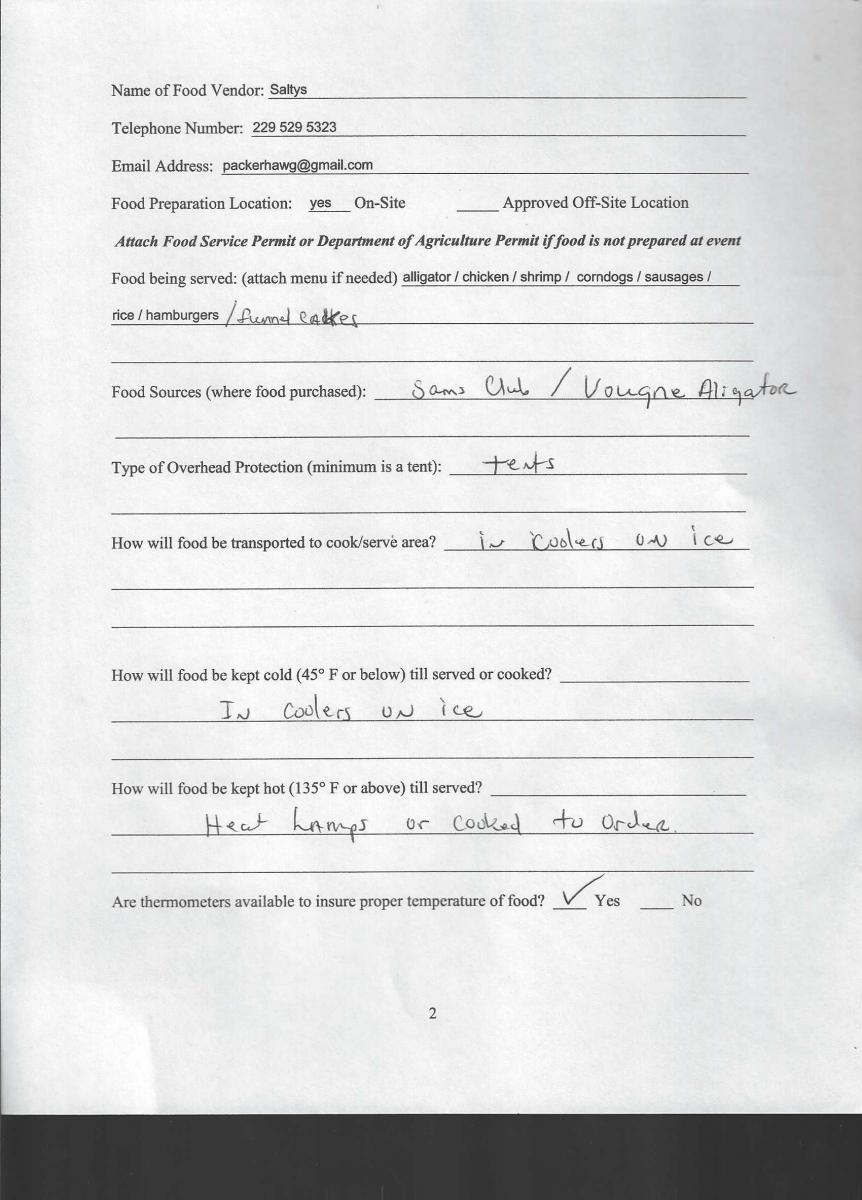 Name of Food Vendor: Saltys
Telephone Number: 229 529 5323
Email Address: packerhawg@gmail.com
Food Preparation Location: yes On-Site ____ Approved Off-Site Location
Attach Food Service Permit or Department of Agriculture Permit if food is not prepared at event
Food being served: (attach menu if needed) alligator / chicken / shrimp / corndogs / sausages /
rice / hamburgers / funnel cakes
Food Sources (where food purchased): Sams Club / Vougne Aligator
Type of Overhead Protection (minimum is a tent): tents
How will food be transported to cook/serve area? in coolers on ice
How will food be kept cold (45° F or below) till served or cooked?
In coolers on ice
How will food be kept hot (135° F or above) till served?
Heat Lamps or cooked to order.
Are thermometers available to insure proper temperature of food? ✓ Yes ____ No
2